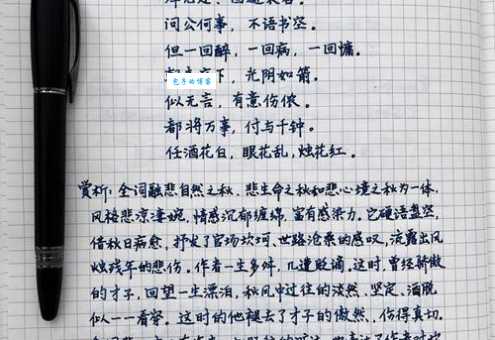 浑无处、回避衰容。
问公何事，不语书空。
但一回醉，一回病，一回慵。
下，光阴如箭。
似无言，有意伤侬。
都将万事，付与千钟。
任酒花白，眼花乱，烛花红。
赏析：全词融悲自然之秋，悲生命之秋和悲心境之秋为一体，
风格悲凉凄婉，情感沉郁缠绵，富有感染力。它硬语盘空，
借秋日病愈，抒发了官场坎坷、世路沧桑的感叹，流露出风
烛残年的悲伤。作者一生多舛，几遭贬谪，这时，曾经骄傲
的才子，回望一生漂泊，秋风中过往的淡然、坚定、洒脱
似一一看。这时的他褪去了才子的傲然、伤得真切。